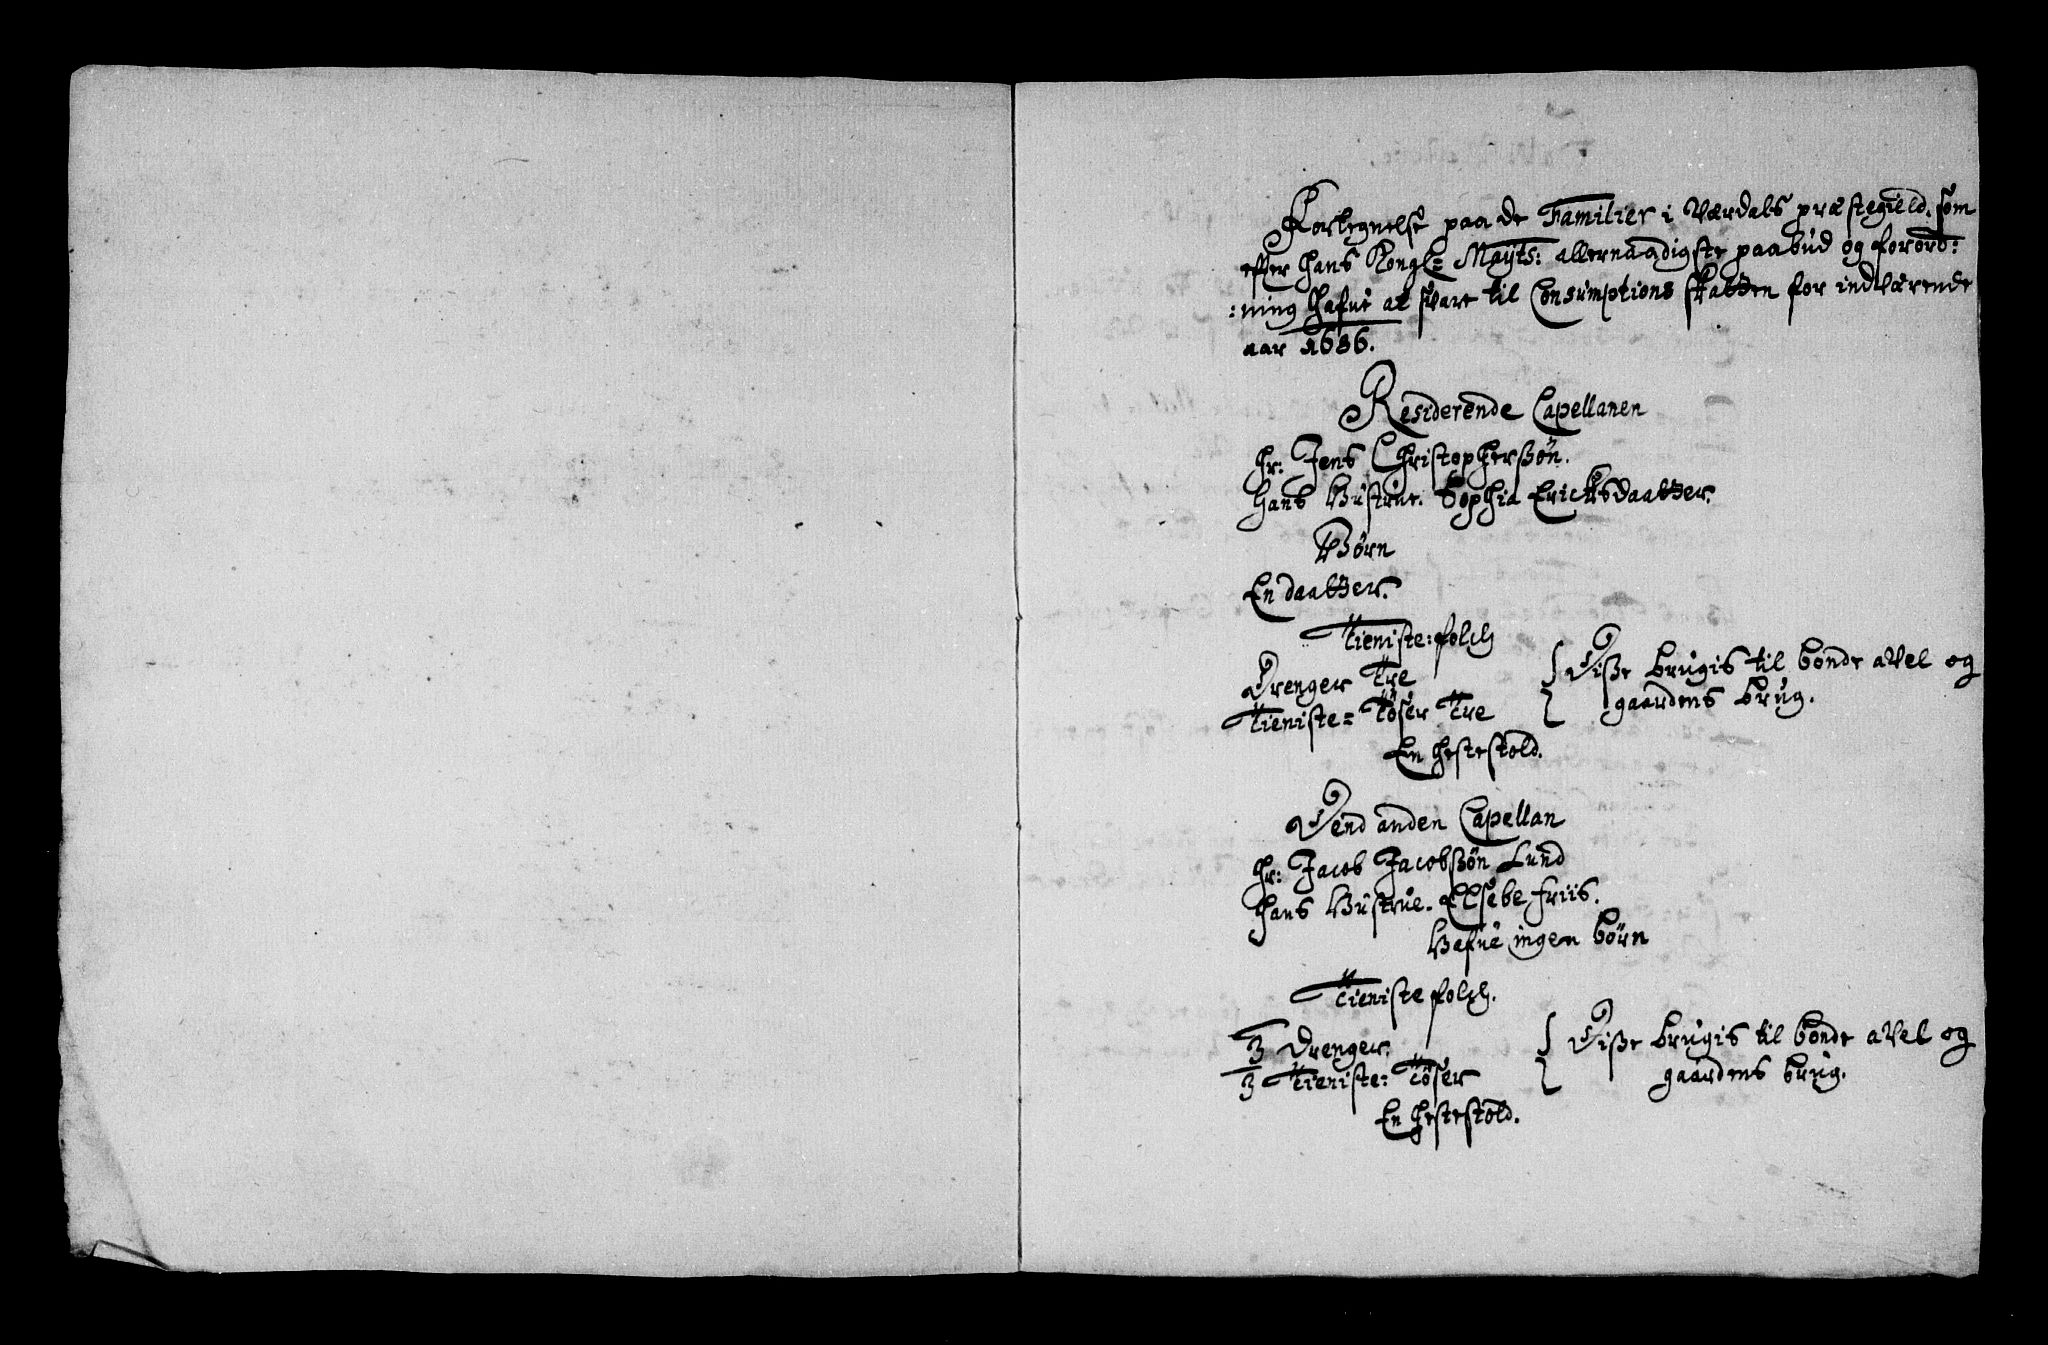 Forteignelse paa de Familier i Værdals præstegield. som
effter Hans Kongl: Mayts: allernaadigste paabud og forord:
:ning hafue at svare til Consumptions skatten for indværende
aar 1686.
Residerende Capellanen
Hr: Jens Christopherßøn.
Hans Hustrue. Sophia Ericksdaatter.
Børn
En daatter.
Tieniste: folch
Drenger Tre
Tieniste= Töser Tre
Diße brugis til bonde avel og
gaardens brug.
En hestestold.
Dend anden Capellan
Hr: Jacob Jacobßøn Lund
Hans Hustrue. Elsebe Friis.
Hafue ingen börn
Tieniste folch.
3 Drenger.
3 Tieniste: Töser
Diße brugis til bonde avel og
gaardens brug.
En hestestold.